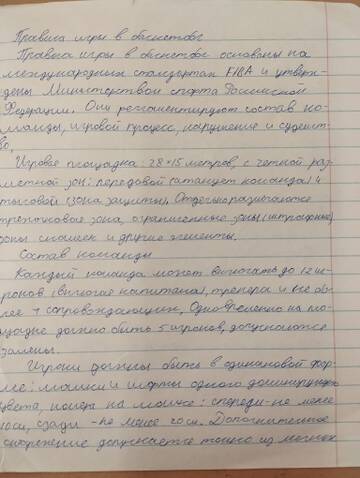 Правила игры в баскетбол
Правила игры в баскетбол основаны на
международных стандартах FIBA и утверж
дены Министерством спорта Российской
Федерации. Они регламентируют состав ко-
манды, игровой процесс, нарушение и судейст-
во.
Игровая площадка: 28*15 метров, с четкой раз
меткой зон: передовой (атакует команда) и
тыловой (зона защиты). Отдельно
трёхочковые зона, ограниченные зоны (штрафные)
зоны скамеек и другие элементы.
Состав команды
Каждый команда может включать до 12 иг-
роков (включая капитана), тренера и не бо
лее 7 сопровождающих. Одновременно на пло
щадке должно быть 5 игроков, допускаются
замены.
Игроки должны быть в одинаковой фор-
ме: майки и шорты одного доминирующ
цвета, номера на майке: спереди-не менее
10см, сзади - не менее 20см. Дополнительное
снаряжение допускается только из мягких